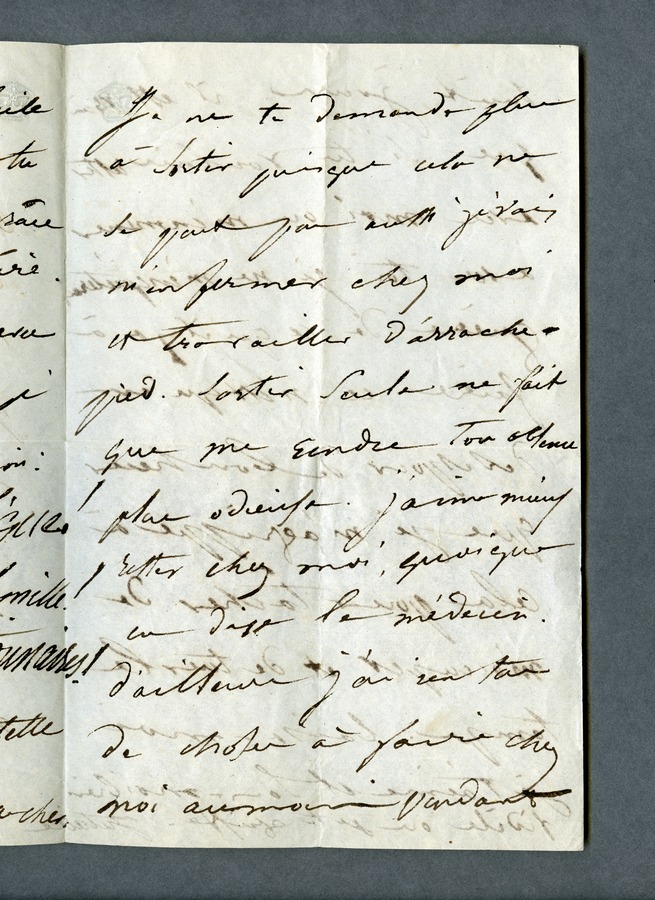 Je ne te demande plus
à sortir puisque cela ne
se peut pas aussi je vais
m'enfermer chez moi
et travailler d'arrache-
pied. Sortir seule ne fait
que me rendre ton absence
plus odieuse. J'aime mieux
rester chez moi, quoique
en dise le médecin.
d'ailleurs j'ai un tas
de choses à faire chez
moi au moins pendant